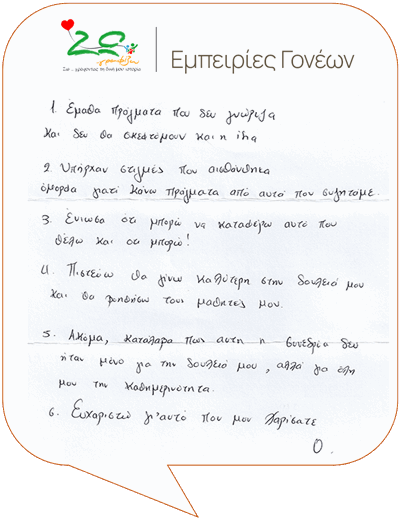 Ζω ... γράφοντας τη δική μου ιστορία
Εμπειρίες Γονέων
1. Εμαθα πράγματα που δεν γνώριζα
και δεν θα σκεφτόμουν και η ίδια
2. Υπήρχαν στιγμές που αισθάνθηκα
όμορφα γιατί κάνω πράγματα από αυτά που συζητάμε.
3. Ένιωσα ότι μπορώ να καταφέρω αυτό που
θέλω και ότι μπορώ!
4. Πιστεύω θα γίνω καλύτερη στην δουλειά μου
και θα βοηθήσω τους μαθητές μου.
5. Ακόμα, κατάλαβα πως αυτή η συνεδρία δεν
ήταν μόνο για την δουλειά μου, αλλά για όλη
μου την καθημερινότητα.
6. Ευχαριστώ γι'αυτό που μου χαρίσατε
Ο.